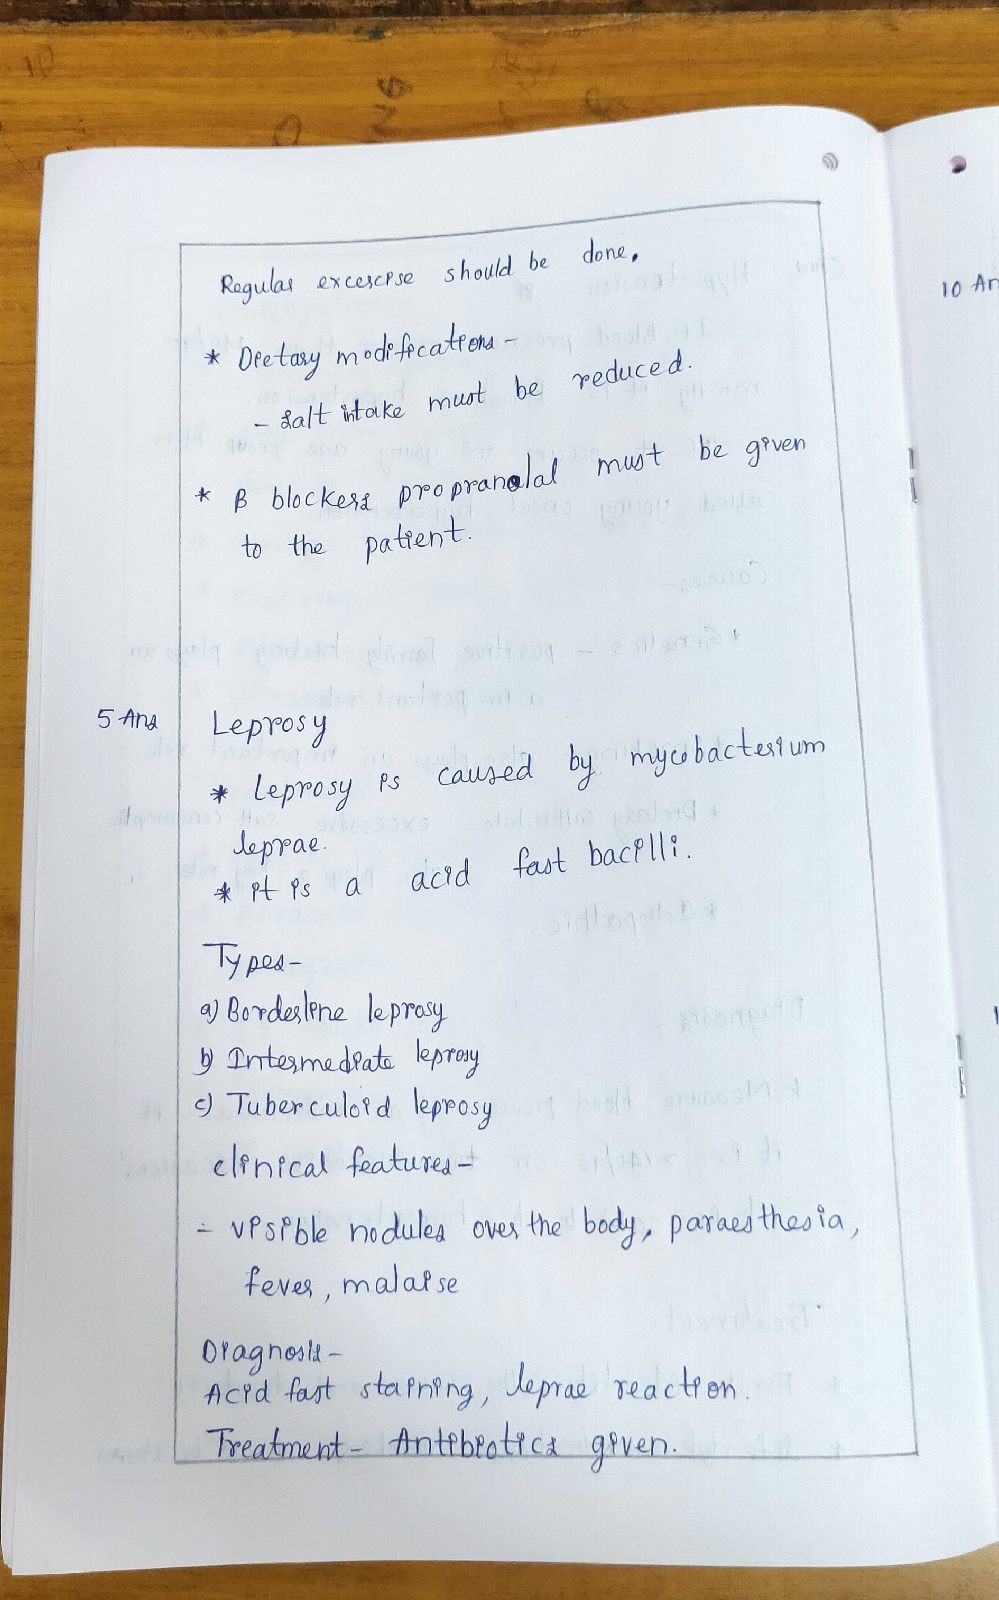 Regular excercise should be done.
* Dietary modifications -
- Salt intake must be reduced.
* β blockers propranolal must be given
to the patient.
5 Ans Leprosy
* Leprosy is caused by mycobacterium
leprae.
* it is a acid fast bacilli.
Types-
a) Borderline leprosy
b) Intermediate leprosy
c) Tuberculoid leprosy
clinical features-
- visible nodules over the body, paraesthesia,
fever, malaise
Diagnosis-
Acid fast staining, leprae reaction.
Treatment- Antibiotics given.
10 An